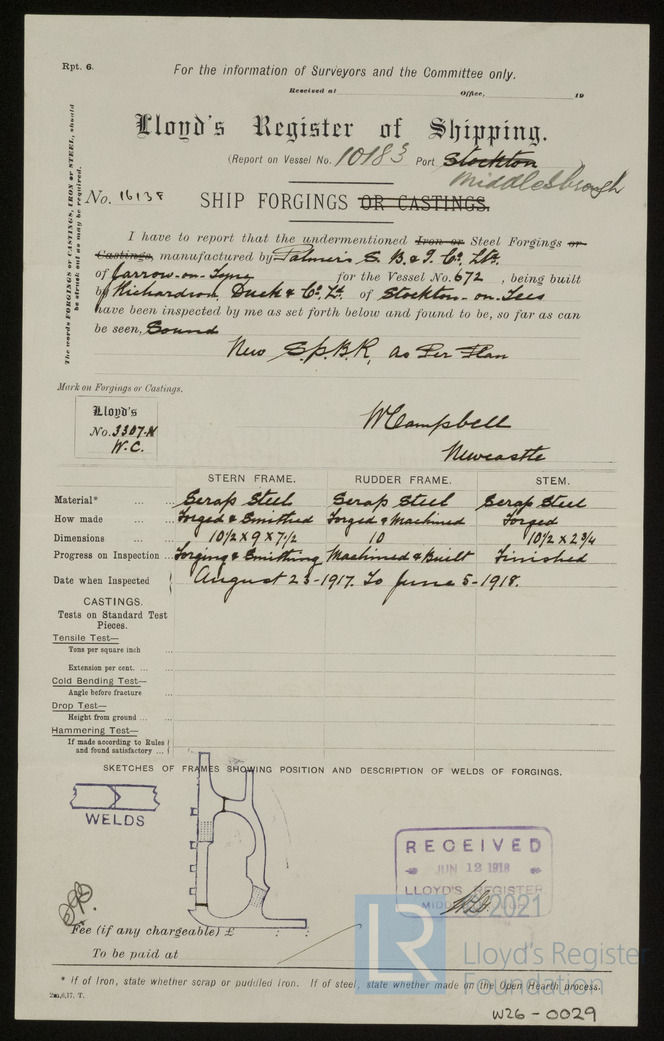 Rpt. 6.
For the information of Surveyors and the Committee only.
Received at Office, 19
Lloyd's Register of Shipping.
(Report on Vessel No. 10183 Port Stockton
Middlesbrough
No. 16138 SHIP FORGINGS OR CASTINGS.
The words FORGINGS or CASTINGS, IRON or STEEL, should
be struck out as may be required.
I have to report that the undermentioned Iron or Steel Forgings or
Castings, manufactured by Palmers S. B. & I. Co. Ltd.
of Jarrow-on-Tyne for the Vessel No. 672 , being built
by Richardson, Duck & Co. Lt. of Stockton-on-Tees
have been inspected by me as set forth below and found to be, so far as can
be seen, Sound
New as Per Plan
Mark on Forgings or Castings.
Lloyd's
No. 3307.N
W.C.
W Campbell
Newcastle
STERN FRAME. RUDDER FRAME. STEM.
Material* ... ... Scrap Steel Scrap Steel Scrap Steel
How made ... ... Forged & Smithed Forged & Machined Forged
Dimensions ... ... 10 1/2 x 9 x 7 1/2 10 10 1/2 x 2 3/4
Progress on Inspection ... Forging & Smithing Machined & Built Finished
Date when Inspected August 23-1917. To June 5-1918.
CASTINGS.
Tests on Standard Test
Pieces.
Tensile Test—
Tons per square inch ...
Extension per cent. ... ...
Cold Bending Test—
Angle before fracture
Drop Test—
Height from ground ... ...
Hammering Test—
If made according to Rules
and found satisfactory ...
SKETCHES OF FRAMES SHOWING POSITION AND DESCRIPTION OF WELDS OF FORGINGS.
WELDS
RECEIVED
JUN 12 1918
LLOYD'S REGISTER
© 2021
LR
Lloyd's Register
Foundation
Fee (if any chargeable) £
To be paid at
* If of Iron, state whether scrap or puddled iron. If of steel, state whether made on the Open Hearth process.
2m,6,17. T.
W26-0029